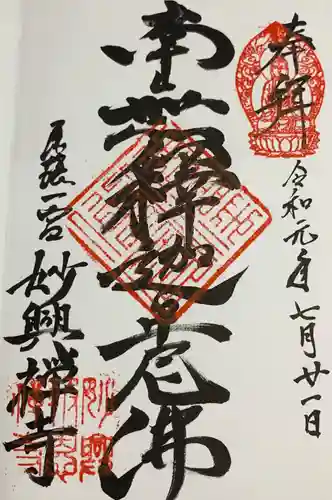 奉拝
令和元年七月廿一日
南無釋迦牟尼佛
尾張一宮
妙興禅寺